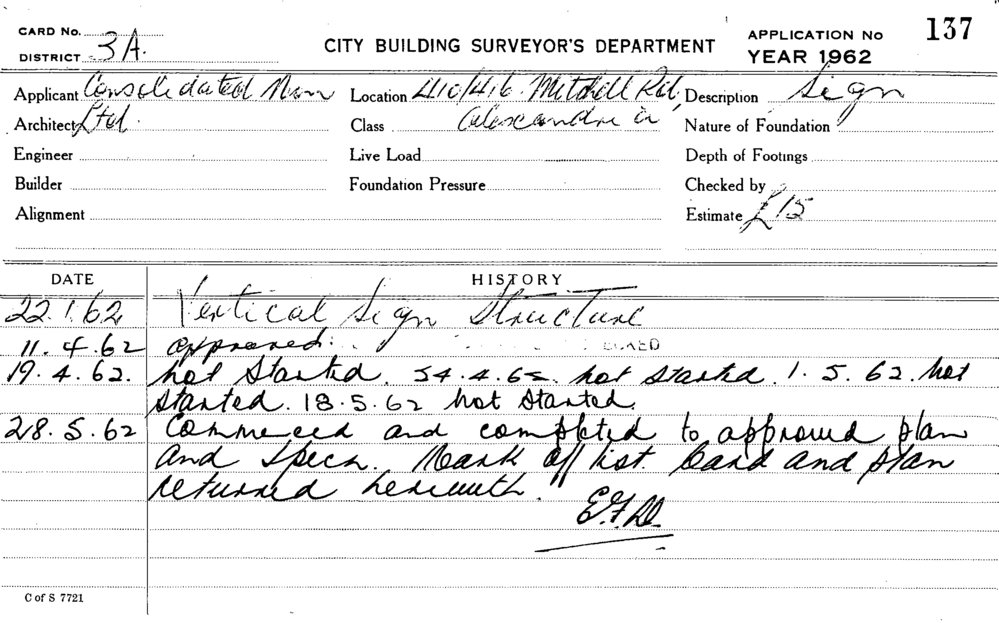 CARD No.
DISTRICT 3A.
CITY BUILDING SURVEYOR'S DEPARTMENT
APPLICATION No 137
YEAR 1962
Applicant Consolidated Mon Location 410/416 Mitchell Rd, Description Sign
Architect Ltd. Class Alexandria Nature of Foundation
Engineer Live Load Depth of Footings
Builder Foundation Pressure Checked by
Alignment Estimate £15
DATE HISTORY
22.1.62 Vertical Sign Structure
11.4.62 approved.
19.4.62. not started. 4.62 not started. 1.5.62. not
started. 18.5.62 not started.
28.5.62 Commeced and completed to approved plan
and specn. Mark off list. Card and plan
returned herewith.
C of S 7721